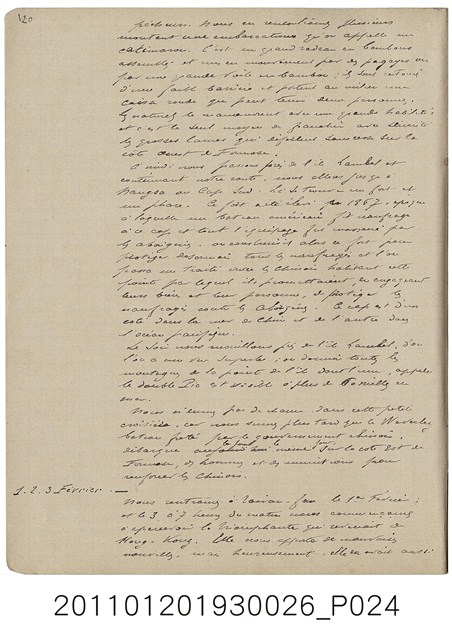 120
pêcheurs. Nous en rencontrâmes plusieurs
montant une embarcation qu'on appelle un
catimaron. C'est un grand radeau en bambous
assemblés et mis en mouvement par des pagayes ou
par une grande voile en bambou; ils sont entourés
d'une faible barrière et portent au milieu une
caisse ronde qui peut tenir deux personnes.
Les naturels le manœuvrent avec une grande habileté
et c'est le seul moyen de franchir avec sécurité
les grosses lames qui déferlent sans cesse sur la
côte ouest de Formose.
A midi nous passons près de l'île Lambay et
continuant notre route, nous allons jusqu'à
ou Cap Sud. Là se trouve un fort et
un phare. Ce fort a été élevé en 1867, époque
à laquelle un bateau américain fit naufrage
à ce cap et tout l'équipage fut massacré par
les aborigènes. On construisit alors ce fort pour
protéger désormais tous les naufragés et l'on
passa un traité avec les Chinois habitant cette
pointe par lequel ils promettaient, en engageant
leurs biens et leur personne, de protéger les
naufragés contre les Aborigènes. Ce cap est d'un
côté dans la mer de Chine et de l'autre dans
l'océan pacifique.
Le soir nous mouillons près de l'île Lambay, d'où
l'on a une vue superbe; on domine toutes les
montagnes de la pointe de l'île dont l'une, appelée
le double Pic est visible à plus de milles en
mer.
Nous n'eûmes pas de chance dans cette petite
croisière, car nous sûmes plus tard que le Waverley
bateau frété par le gouvernement chinois,
débarqua le jour même sur la côte Est de
Formose, des hommes et des munitions pour
renforcer les Chinois.
1. 2. 3 Février. —
Nous rentrons à Taïwan-foo le 1er Février;
et le 3 à 7 heures du matin nous commençons
à apercevoir la Triomphante qui revenait de
Hong-Kong. Elle nous apporte de mauvaises
nouvelles, mais heureusement. Elle avait aussi
201101201930026_P024